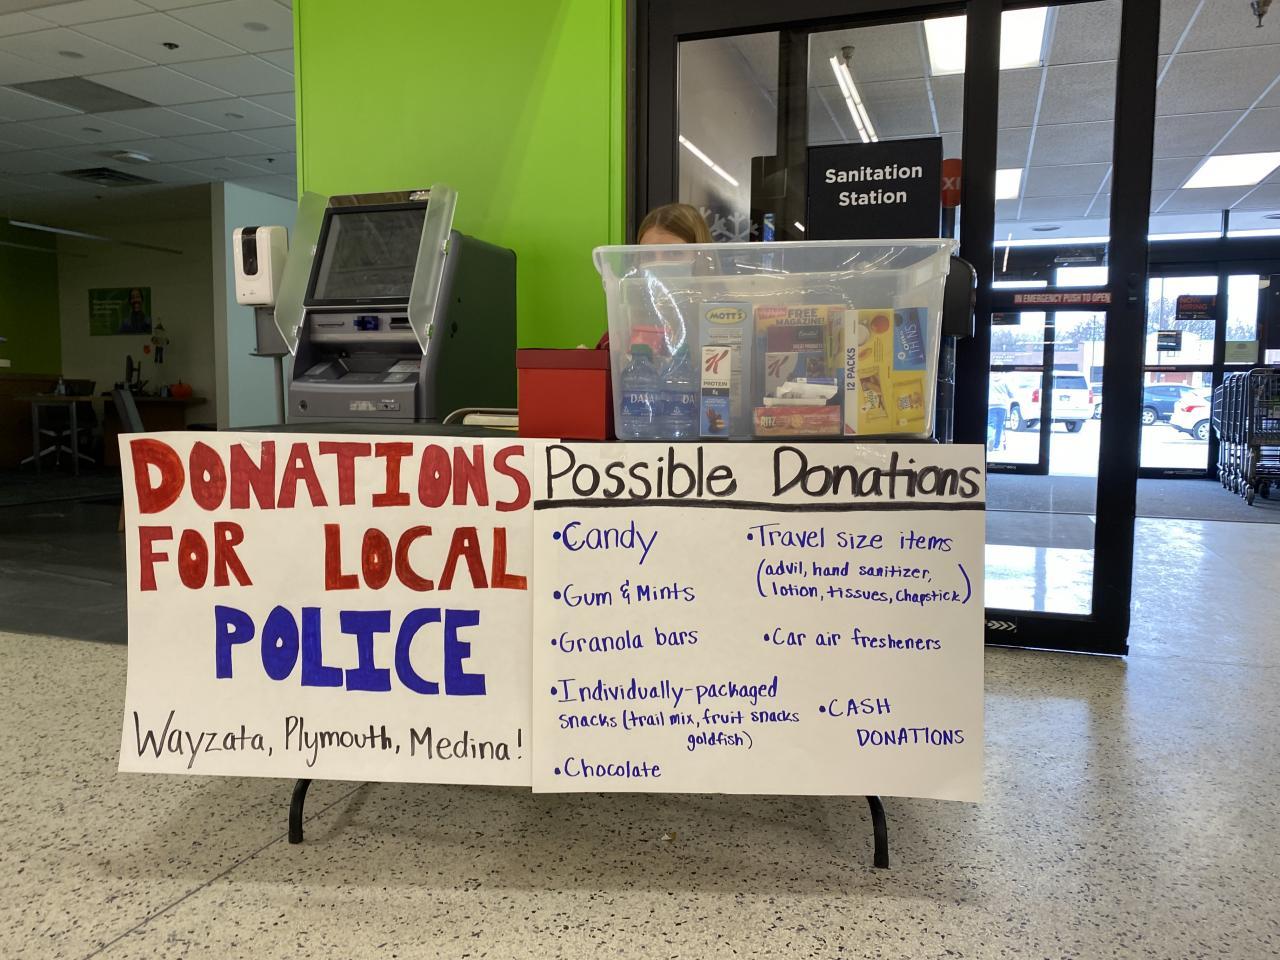 Sanitation
Station
IN EMERGENCY PUSH TO OPEN
MOTT'S
FREE
MAGAZINE!
K
PROTEIN
12 PACKS
THINS
RITZ
DONATIONS
FOR LOCAL
POLICE
Wayzata, Plymouth, Medina!
Possible Donations
•Candy
•Gum & Mints
•Granola bars
•Individually-packaged
snacks (trail mix, fruit snacks
goldfish)
•Chocolate
•Travel size items
(advil, hand sanitizer,
lotion, tissues, chapstick)
•Car air fresheners
•CASH
DONATIONS